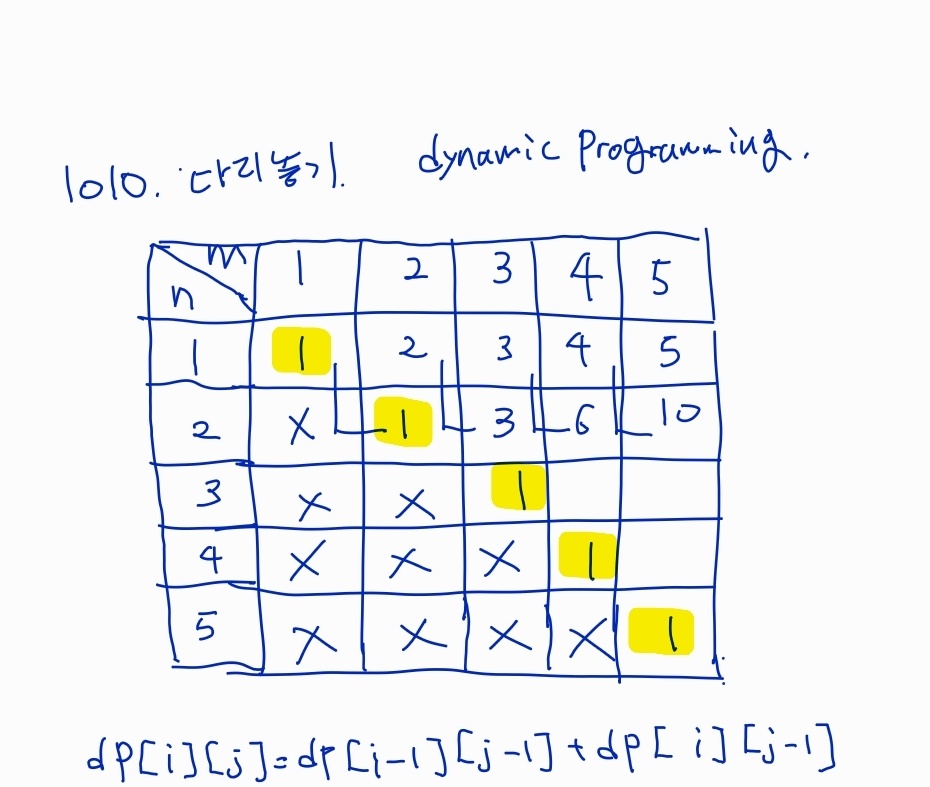 1010. 다리놓기. dynamic Programming.
n m 1 2 3 4 5
1 1 2 3 4 5
2 X 1 3 6 10
3 X X 1
4 X X X 1
5 X X X X 1
dp[i][j]=dp[i-1][j-1]+dp[i][j-1]